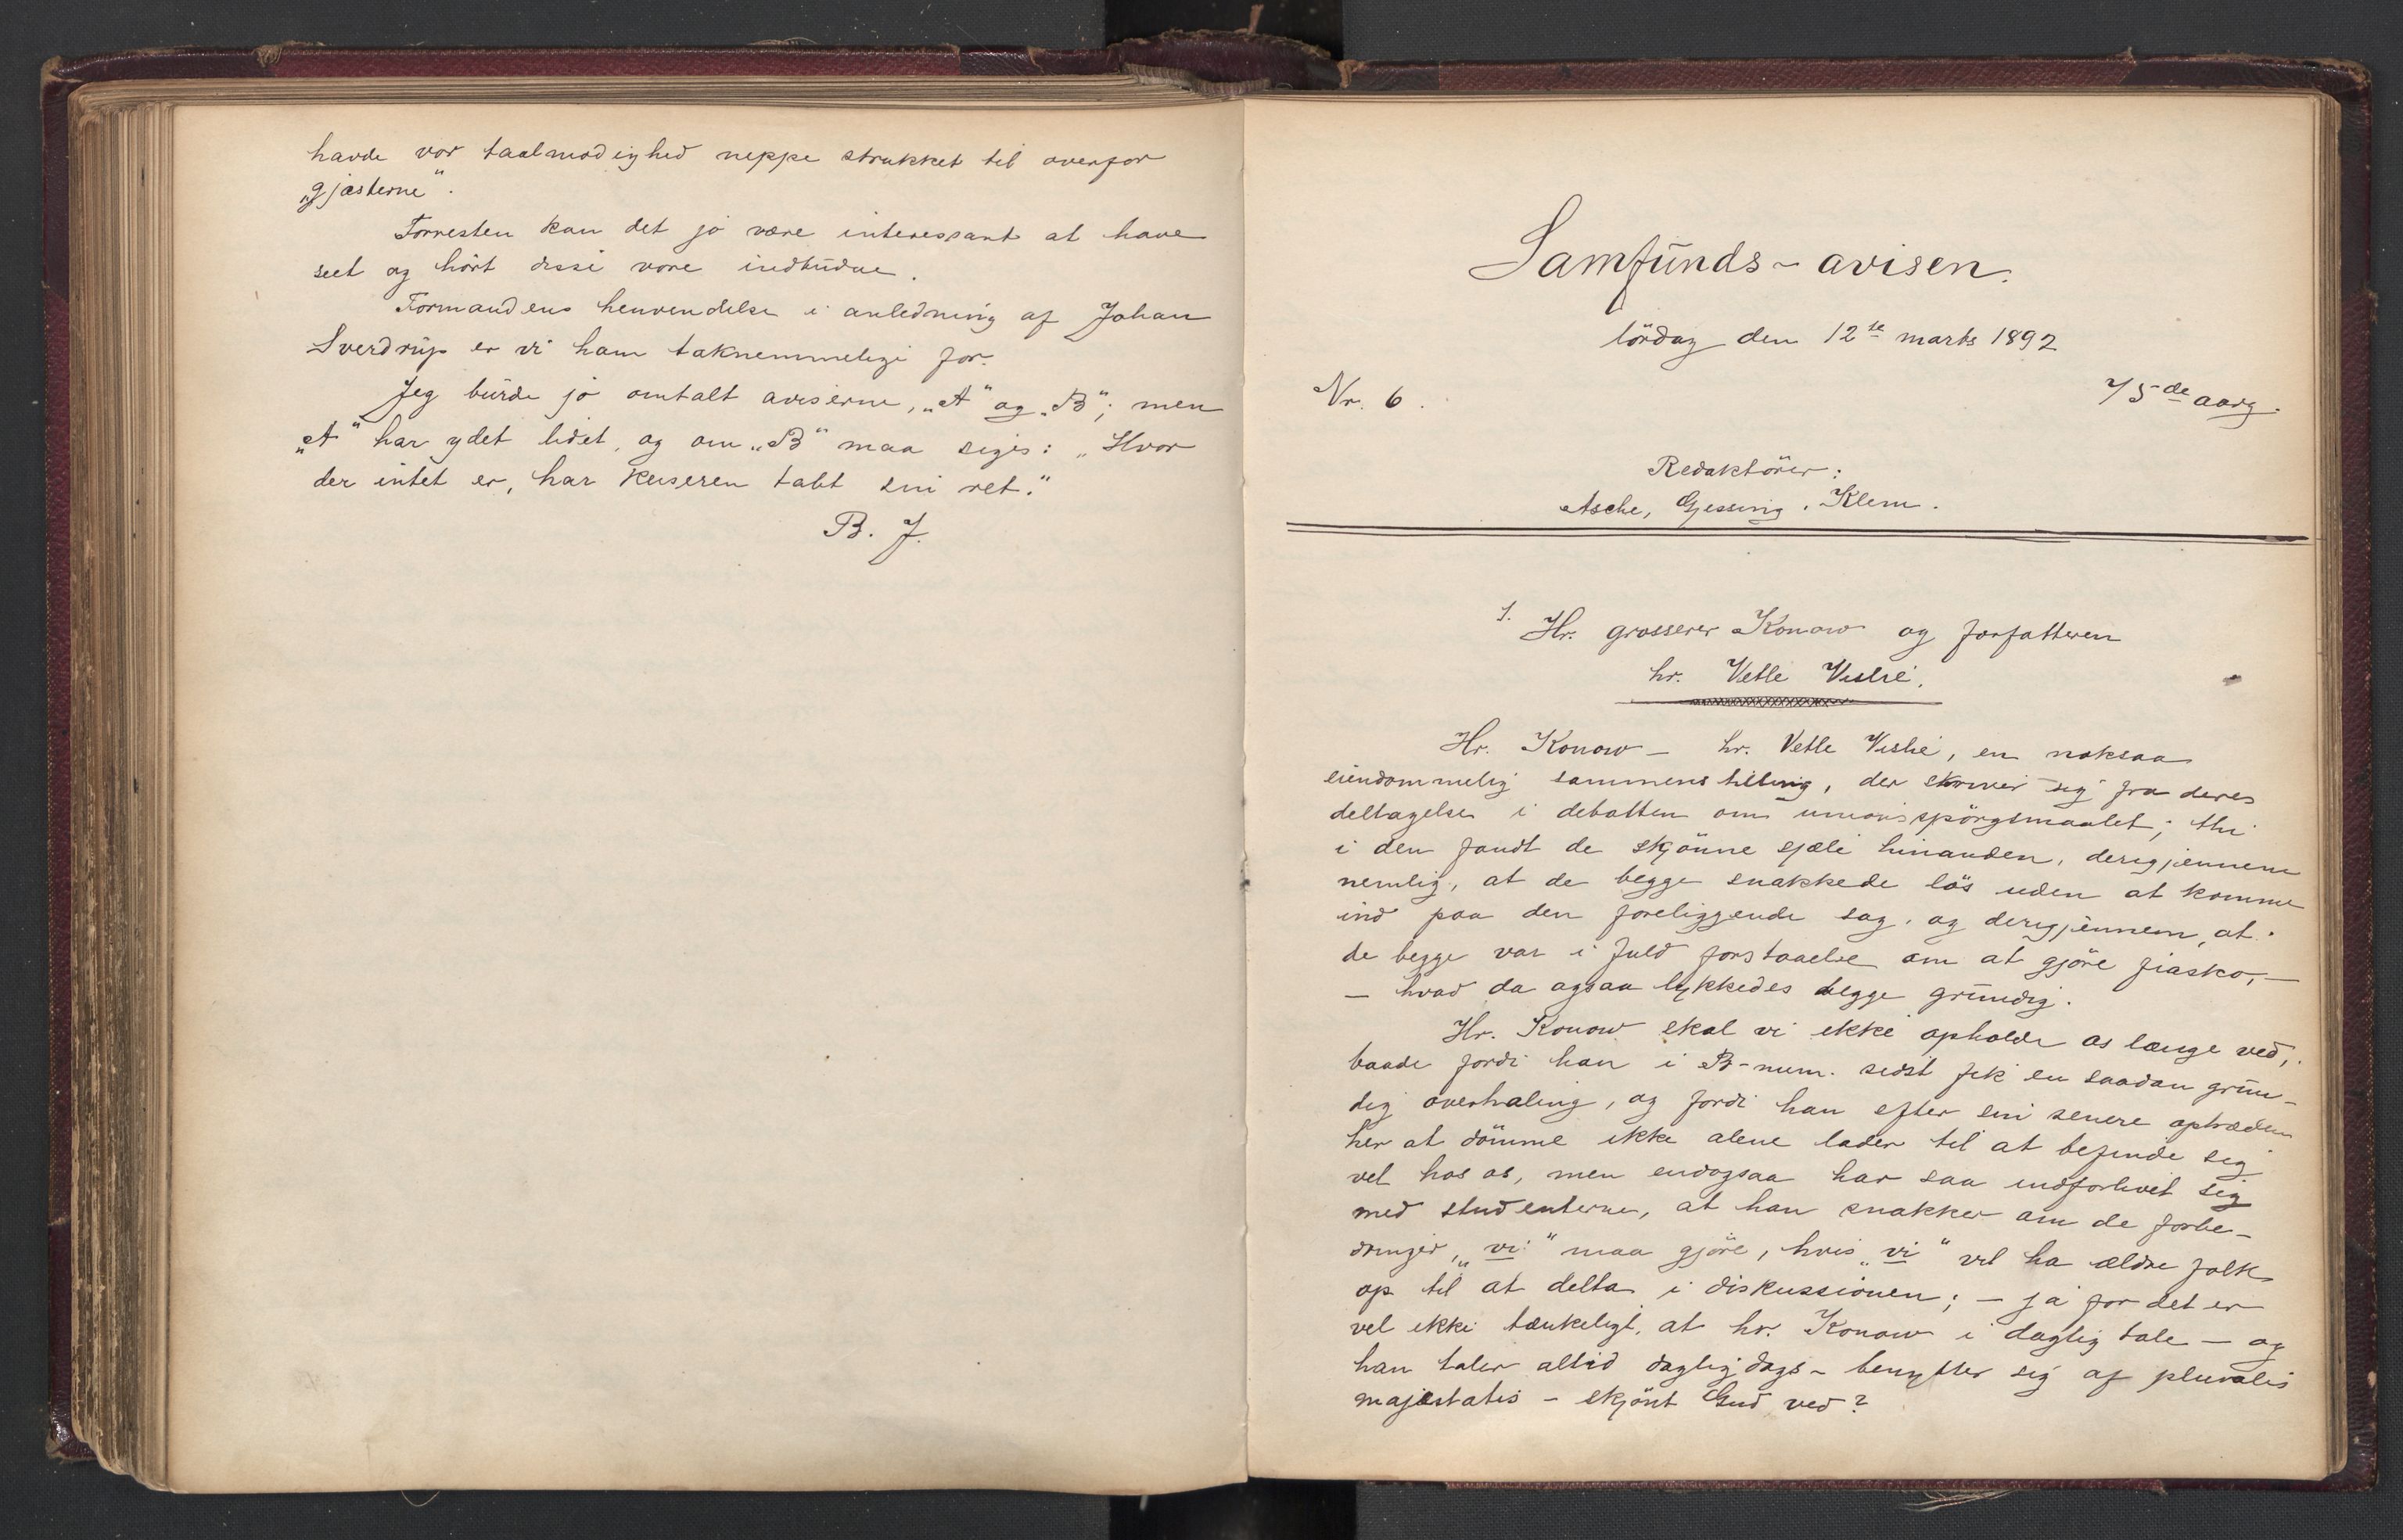 havde vor taalmodighed neppe strukket til overfor
„gjæsterne“.
Forresten kan det jo være interessant at have
seet og hört disse vore indbudne.
Formandens henvendelse i anledning af Johan
Sverdrup er vi ham taknemmelige for.
Jeg burde jo omtalt aviserne, „A“ og „B“; men
„A“ har ydet lidet, og om „B“ maa siges: „Hvor
der intet er, har keiseren tabt sin ret.“
B. J.
Samfunds-avisen.
lördag den 12te marts 1892
Nr. 6.
75de aarg.
Redaktörer:
Asche, Gjessing, Klem.
1. Hr. grosserer Konow og forfatteren
hr. Vetle Vislie.
Hr. Konow – hr. Vetle Vislie, en noksaa
eiendommelig sammenstilling, der skriver sig fra deres
deltagelse i debatten om unionsspörgsmaalet; thi
i den fandt de skjönne sjæle hinanden, derigjennem
nemlig, at de begge snakkede lös uden at komme
ind paa den foreliggende sag, og derigjennem, at
de begge var i fuld forstaaelse om at gjöre fiasko, –
– hvad da ogsaa lykkedes begge grundig.
Hr. Konow skal vi ikke opholde os længe ved,
baade fordi han i B-num. sidst fik en saadan grun-
dig overhaling, og fordi han efter sin senere optræden
her at dömme ikke alene lader til at befinde sig
vel hos os, men endogsaa har saa indforlivet sig
med studenterne, at han snakker om de forbe-
dringer, „vi“ maa gjöre, hvis „vi“ vil ha ældre folk
op til at delta i diskussionen; – ja for det er
vel ikke tænkeligt, at hr. Konow i daglig tale – og
han taler altid dagligdags – benytter sig af pluralis
majestatis – skjönt Gud ved?